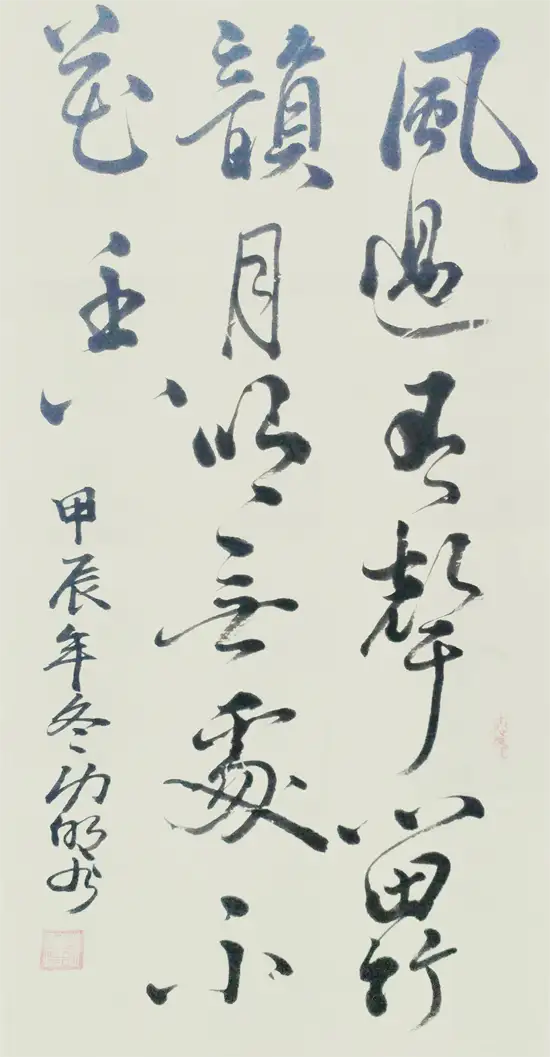 風過有聲留竹
韻月明無處不
花香
甲辰年冬